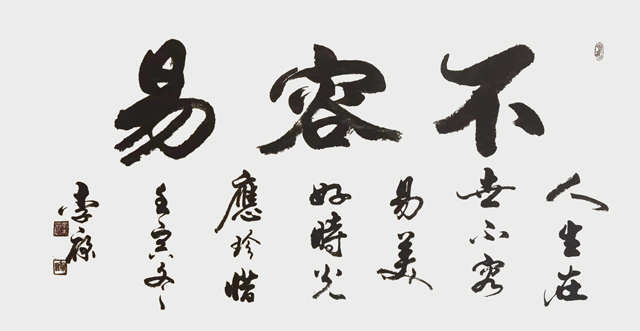 不容易
人生在
世不容
易美
好時光
應珍惜
壬寅冬
李